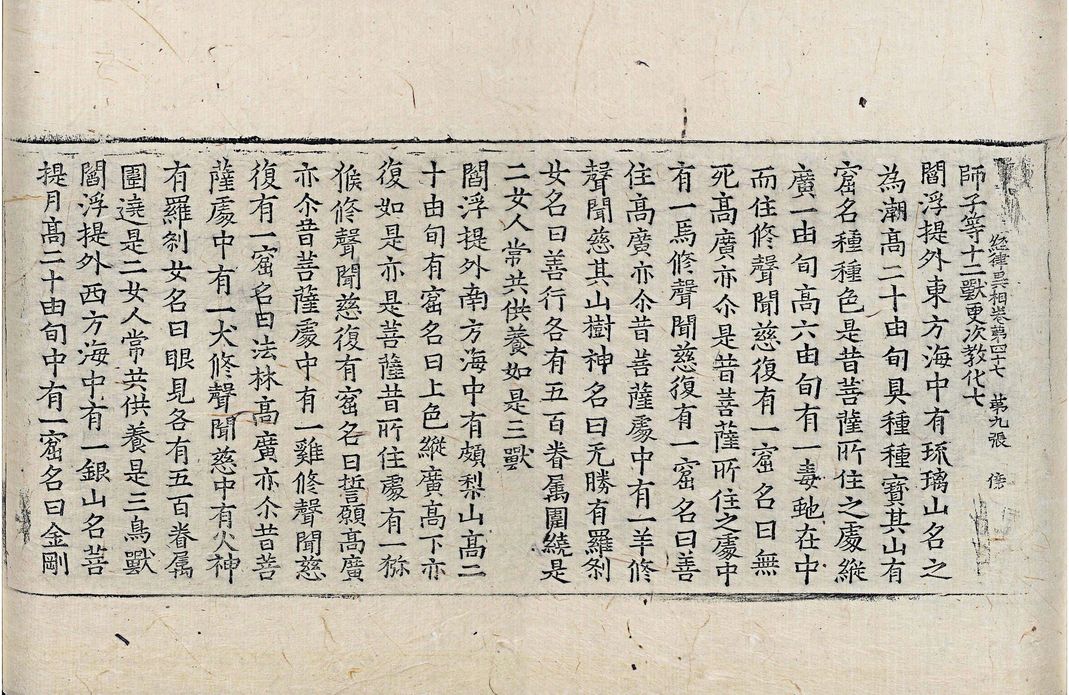 経律異相卷第四十七 第九張 傍
師子等十二獸更次教化七
閻浮提外東方海中有琉璃山名之
為潮高二十由旬具種種寶其山有
窟名種種色是昔菩薩所住之處縱
廣一由旬高六由旬有一毒虵在中
而住修聲聞慈復有一窟名曰無
死高廣亦尒是昔菩薩所住之處中
有一馬修聲聞慈復有一窟名曰善
住高廣亦尒昔菩薩處中有一羊修
聲聞慈其山樹神名曰无勝有羅刹
女名曰善行各有五百眷属圍繞是
二女人常共供養如是三獸
閻浮提外南方海中有頗梨山高二
十由旬有窟名曰上色縱廣高下亦
復如是亦是菩薩昔所住處有一猕
猴修聲聞慈復有窟名曰誓願高廣
亦尒昔菩薩處中有一雞修聲聞慈
復有一窟名曰法林高廣亦尒昔菩
薩處中有一犬修聲聞慈中有火神
有羅刹女名曰眼見各有五百眷属
圍遶是二女人常共供養是三鳥獸
閻浮提外西方海中有一銀山名菩
提月高二十由旬中有一窟名曰金剛